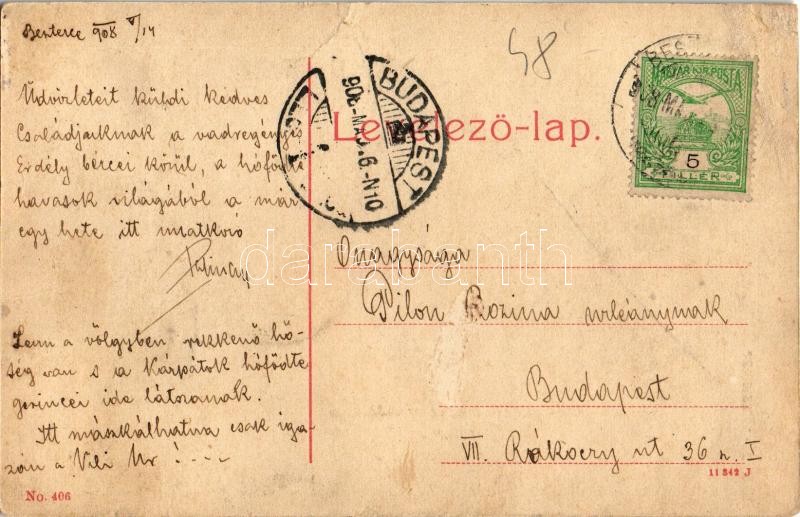 Beszterce 908 V/14
48
Üdvözleteit küldi kedves
Családjaiknak a vadregényes
Erdély bércei közül, a hófödte
havasok világából a már
egy hete itt mulató
Lenn a völgyben rekkenő hő-
ség van s a Kárpátok hófödte
gerincei ide látszanak.
Itt mászkálhatna csak iga-
zán a Vili Úr!...
No. 406
BUDAPEST
908 MÁJ 16.-N10
Levelező-lap.
MAGYAR KIR. POSTA
5
FILLÉR
Önagysága
Pilon Rozina urleánynak
Budapest
VII. Rákoczy út 36 sz. I
11342 J
darabanth